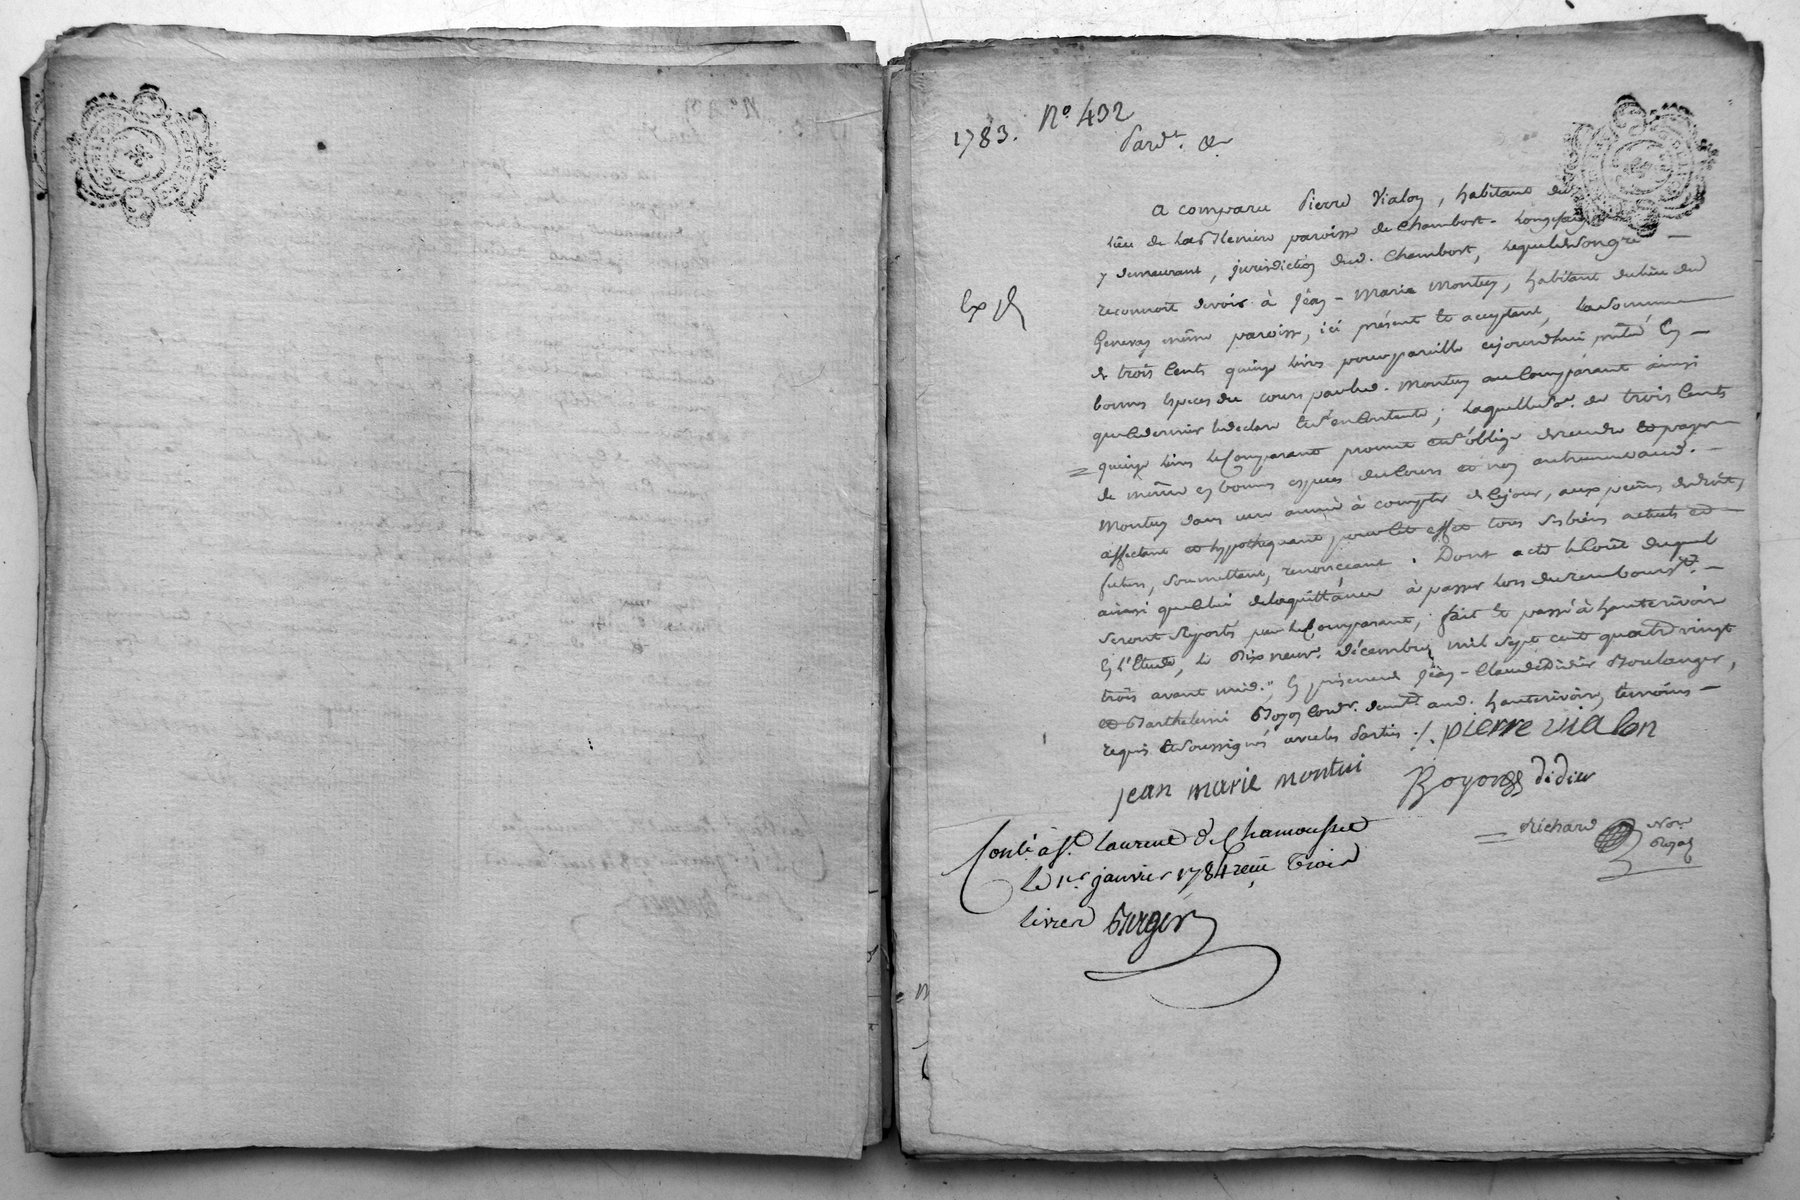 1783.
N.º 432
Pard.t &
a comparu Pierre Vialon, habitant du
lieu de paroisse de Chambost-Longessaigne
y demeurant, jurisdiction dud. Chambost, lequel de son gré
Exp.
reconnoit devoir à jean-Marie Montuy, habitant du lieu du
Genevay même paroisse, ici présent et acceptant, la somme
de trois cents quinze livres pour pareille cejourdhui prêté en
bonnes especes du cours par led. Montuy au comparant ainsi
que ce dernier le declare et s'en contente; laquelle so.e de trois cents
quinze livres le comparant promet et s'oblige de rendre et payer
de même en bonnes especes du cours et non autrement aud.
Montuy dans une année à compter de ce jour, aux peines de droit,
affectant et hypothequant pour cet effet tous ses biens actuels et
futurs, soumettant, renonceant. Dont acte le coût duquel
ainsi que celui de la quittance à passer lors du rembours.t
seront suportés par le comparant; fait et passé à hauterivoire
en l'Etude, le dix neuf décembre mil sept cent quatre vingt
trois avant midi, en présence de jean-Claude Didier Boulanger,
et Barthelemi Boyon cord.r dem.t aud. hauterivoire, temoins
requis et soussignés avec les parties ./. pierre vialon
jean marie montui Boyon didier
Richard No.re Royal
Conlé à S.t Laurent de Chamousset
le 1er janvier 1784 reçu Trois
livres Berger